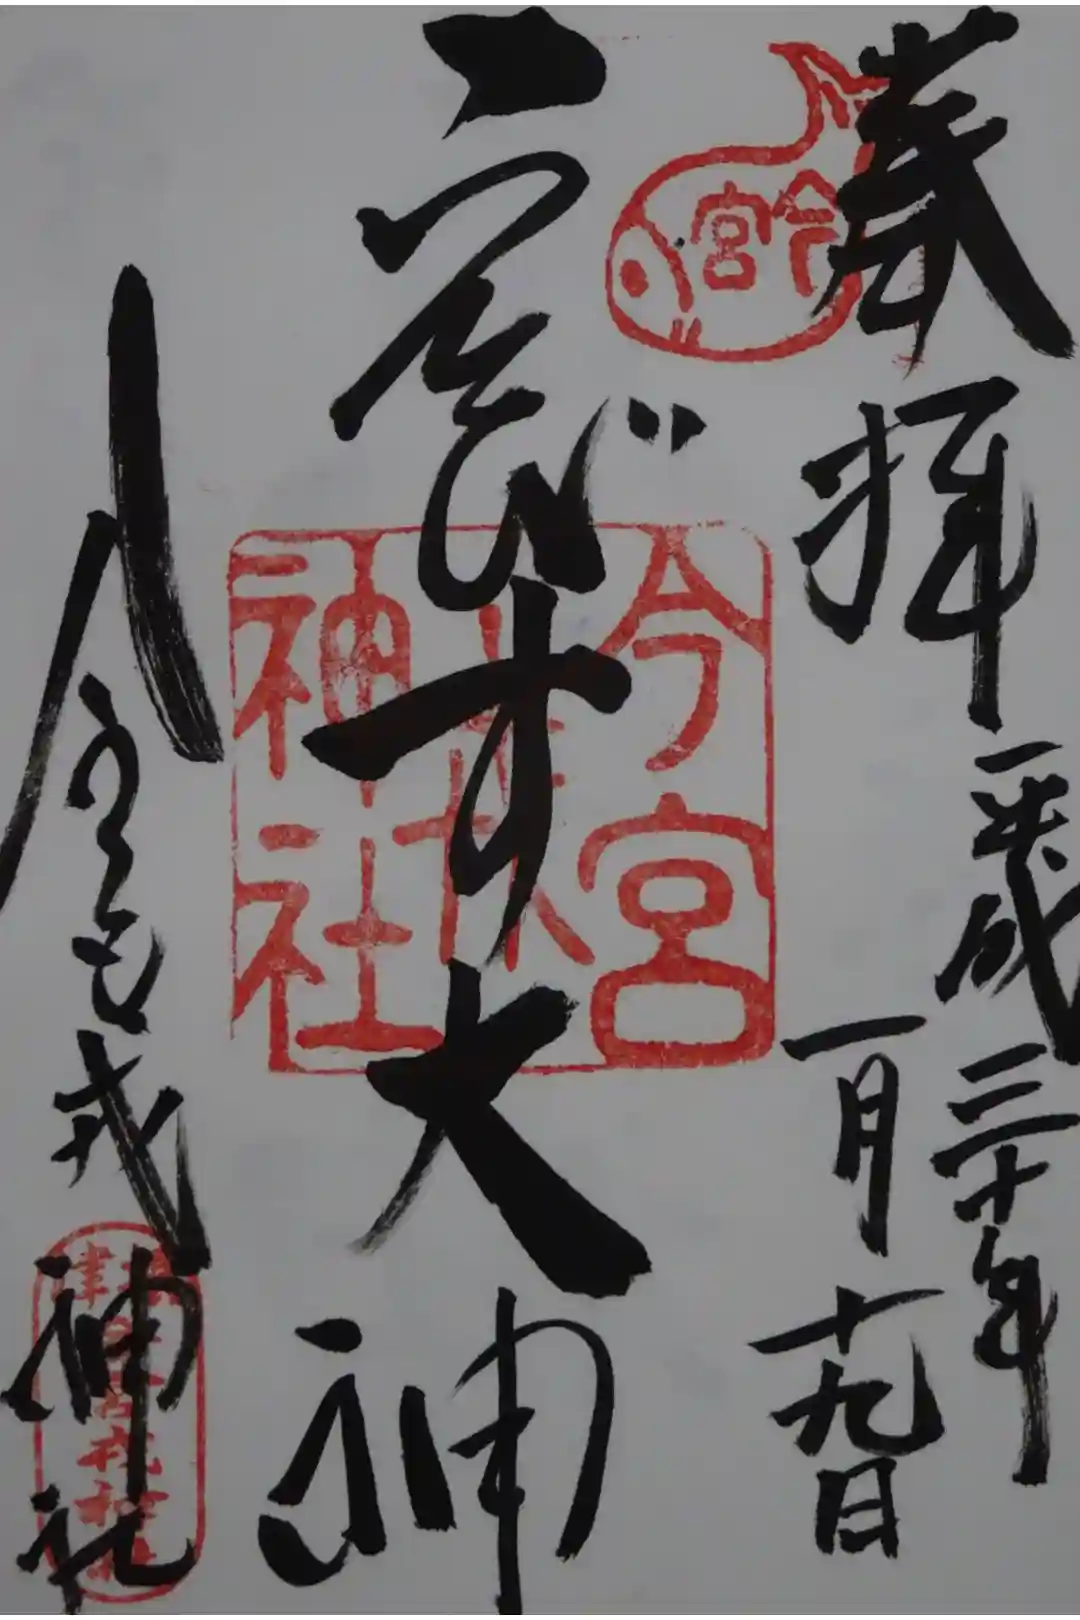 奉拝
平成三十年
一月十九日
今宮
ゑびす大神
今宮
戎
神社
今宮戎神社